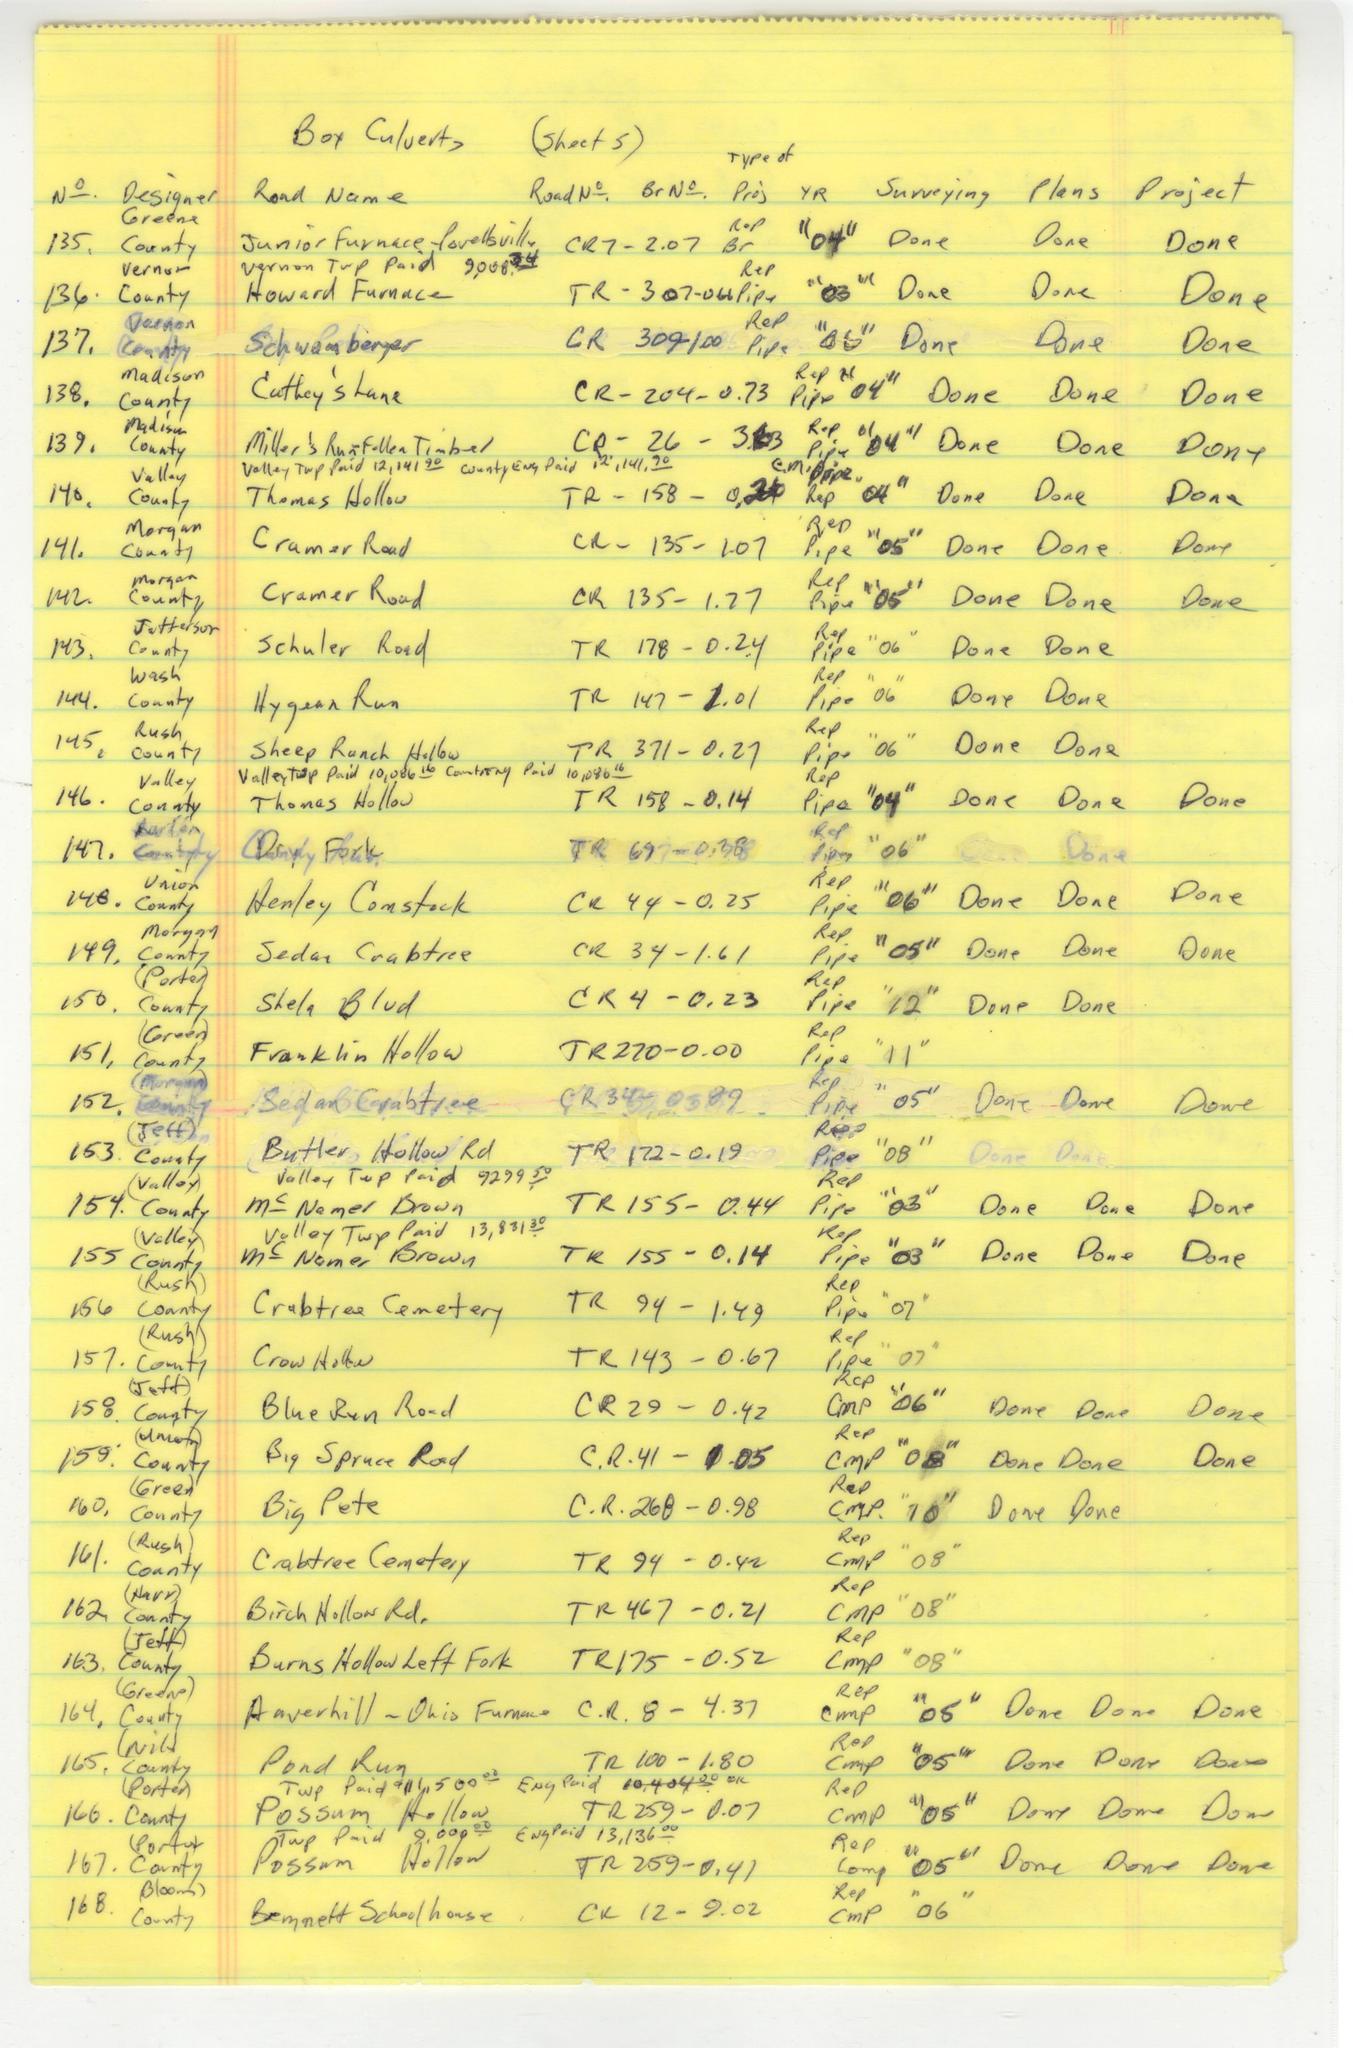 Box Culverts (Sheet 5)
Type of
No. Designer Road Name Road No. Br No. Proj YR Surveying Plans Project
Greene Rep
135. County Junior Furnace-Powellsville CR 7 - 2.07 Br "04" Done Done Done
Vernon Vernon Twp Paid 9,008.34 Rep
136. County Howard Furnace TR - 307-0 Pipe "03" Done Done Done
Vernon Rep
137. County Schwamberger CR 309-1.00 Pipe Done Done Done
Madison Rep
138. County Cuthey's Lane CR - 204 - 0.73 Pipe "04" Done Done Done
Madison Rep
139. County Miller's Run-Fallen Timber CR - 26 - Pipe "04" Done Done Done
Valley Valley Twp Paid 12,141.90 County Eng Paid 12,141.90 C.M. Pipe
140. County Thomas Hollow TR - 158 - Rep "04" Done Done Done
Morgan Rep
141. County Cramer Road CR - 135 - 1.07 Pipe "05" Done Done Done
Morgan Rep
142. County Cramer Road CR 135 - 1.77 Pipe "05" Done Done Done
Jefferson Rep
143. County Schuler Road TR 178 - 0.24 Pipe "06" Done Done
Wash Rep
144. County Hygean Run TR 147 - 1.01 Pipe "06" Done Done
Rush Rep
145. County Sheep Ranch Hollow TR 371 - 0.27 Pipe "06" Done Done
Valley Valley Twp Paid 10,086.16 County Eng Paid 10,086.16 Rep
146. County Thomas Hollow TR 158 - 0.14 Pipe "04" Done Done Done
Rep
147. County Fork TR 697 - 0.38 Pipe "06" Done
Union Rep
148. County Henley Comstock CR 44 - 0.25 Pipe "06" Done Done Done
Morgan Rep
149. County Sedan Crabtree CR 34 - 1.61 Pipe "05" Done Done Done
(Porter) Rep
150. County Shela Blvd CR 4 - 0.23 Pipe "12" Done Done
(Green) Rep
151. County Franklin Hollow TR 270 - 0.00 Pipe "11"
(Morgan) Rep
152. County Sedan Crabtree CR 34 - Pipe "05" Done Done Done
(Jeff) Rep
153. County Butler Hollow Rd TR 172 - 0.19 Pipe "08" Done Done
(Valley) Valley Twp Paid 9299.50 Rep
154. County McNamer Brown TR 155 - 0.44 Pipe "03" Done Done Done
(Valley) Valley Twp Paid 13,831.30 Rep
155 County McNamer Brown TR 155 - 0.14 Pipe "03" Done Done Done
(Rush) Rep
156 County Crabtree Cemetery TR 94 - 1.49 Pipe "07"
(Rush) Rep
157. County Crow Hollow TR 143 - 0.67 Pipe "07"
(Jeff) Rep
158. County Blue Run Road CR 29 - 0.42 Cmp "06" Done Done Done
(Union) Rep
159. County Big Spruce Road C.R. 41 - 1.05 CMP "08" Done Done Done
(Green) Rep
160. County Big Pete C.R. 268 - 0.98 Cmp. "10" Done Done
(Rush) Rep
161. County Crabtree Cemetery TR 94 - 0.42 CMP "08"
(Harr) Rep
162. County Birch Hollow Rd. TR 467 - 0.21 CMP "08"
(Jeff) Rep
163. County Burns Hollow Left Fork TR 175 - 0.52 Cmp "08"
(Greene) Rep
164. County Haverhill - Ohio Furnace C.R. 8 - 4.37 Cmp "05" Done Done Done
(Nile) Rep
165. County Pond Run TR 100 - 1.80 Cmp "05" Done Done Done
(Porter) Twp Paid Eng Paid 10,404.00 OK Rep
166. County Possum Hollow TR 259 - 0.07 CMP "05" Done Done Done
(Porter Twp Paid Eng Paid 13,136.00 Rep
167. County Possum Hollow TR 259 - 0.41 Comp "05" Done Done Done
Bloom) Rep
168. County Bennett Schoolhouse CR 12 - 9.02 CMP "06"